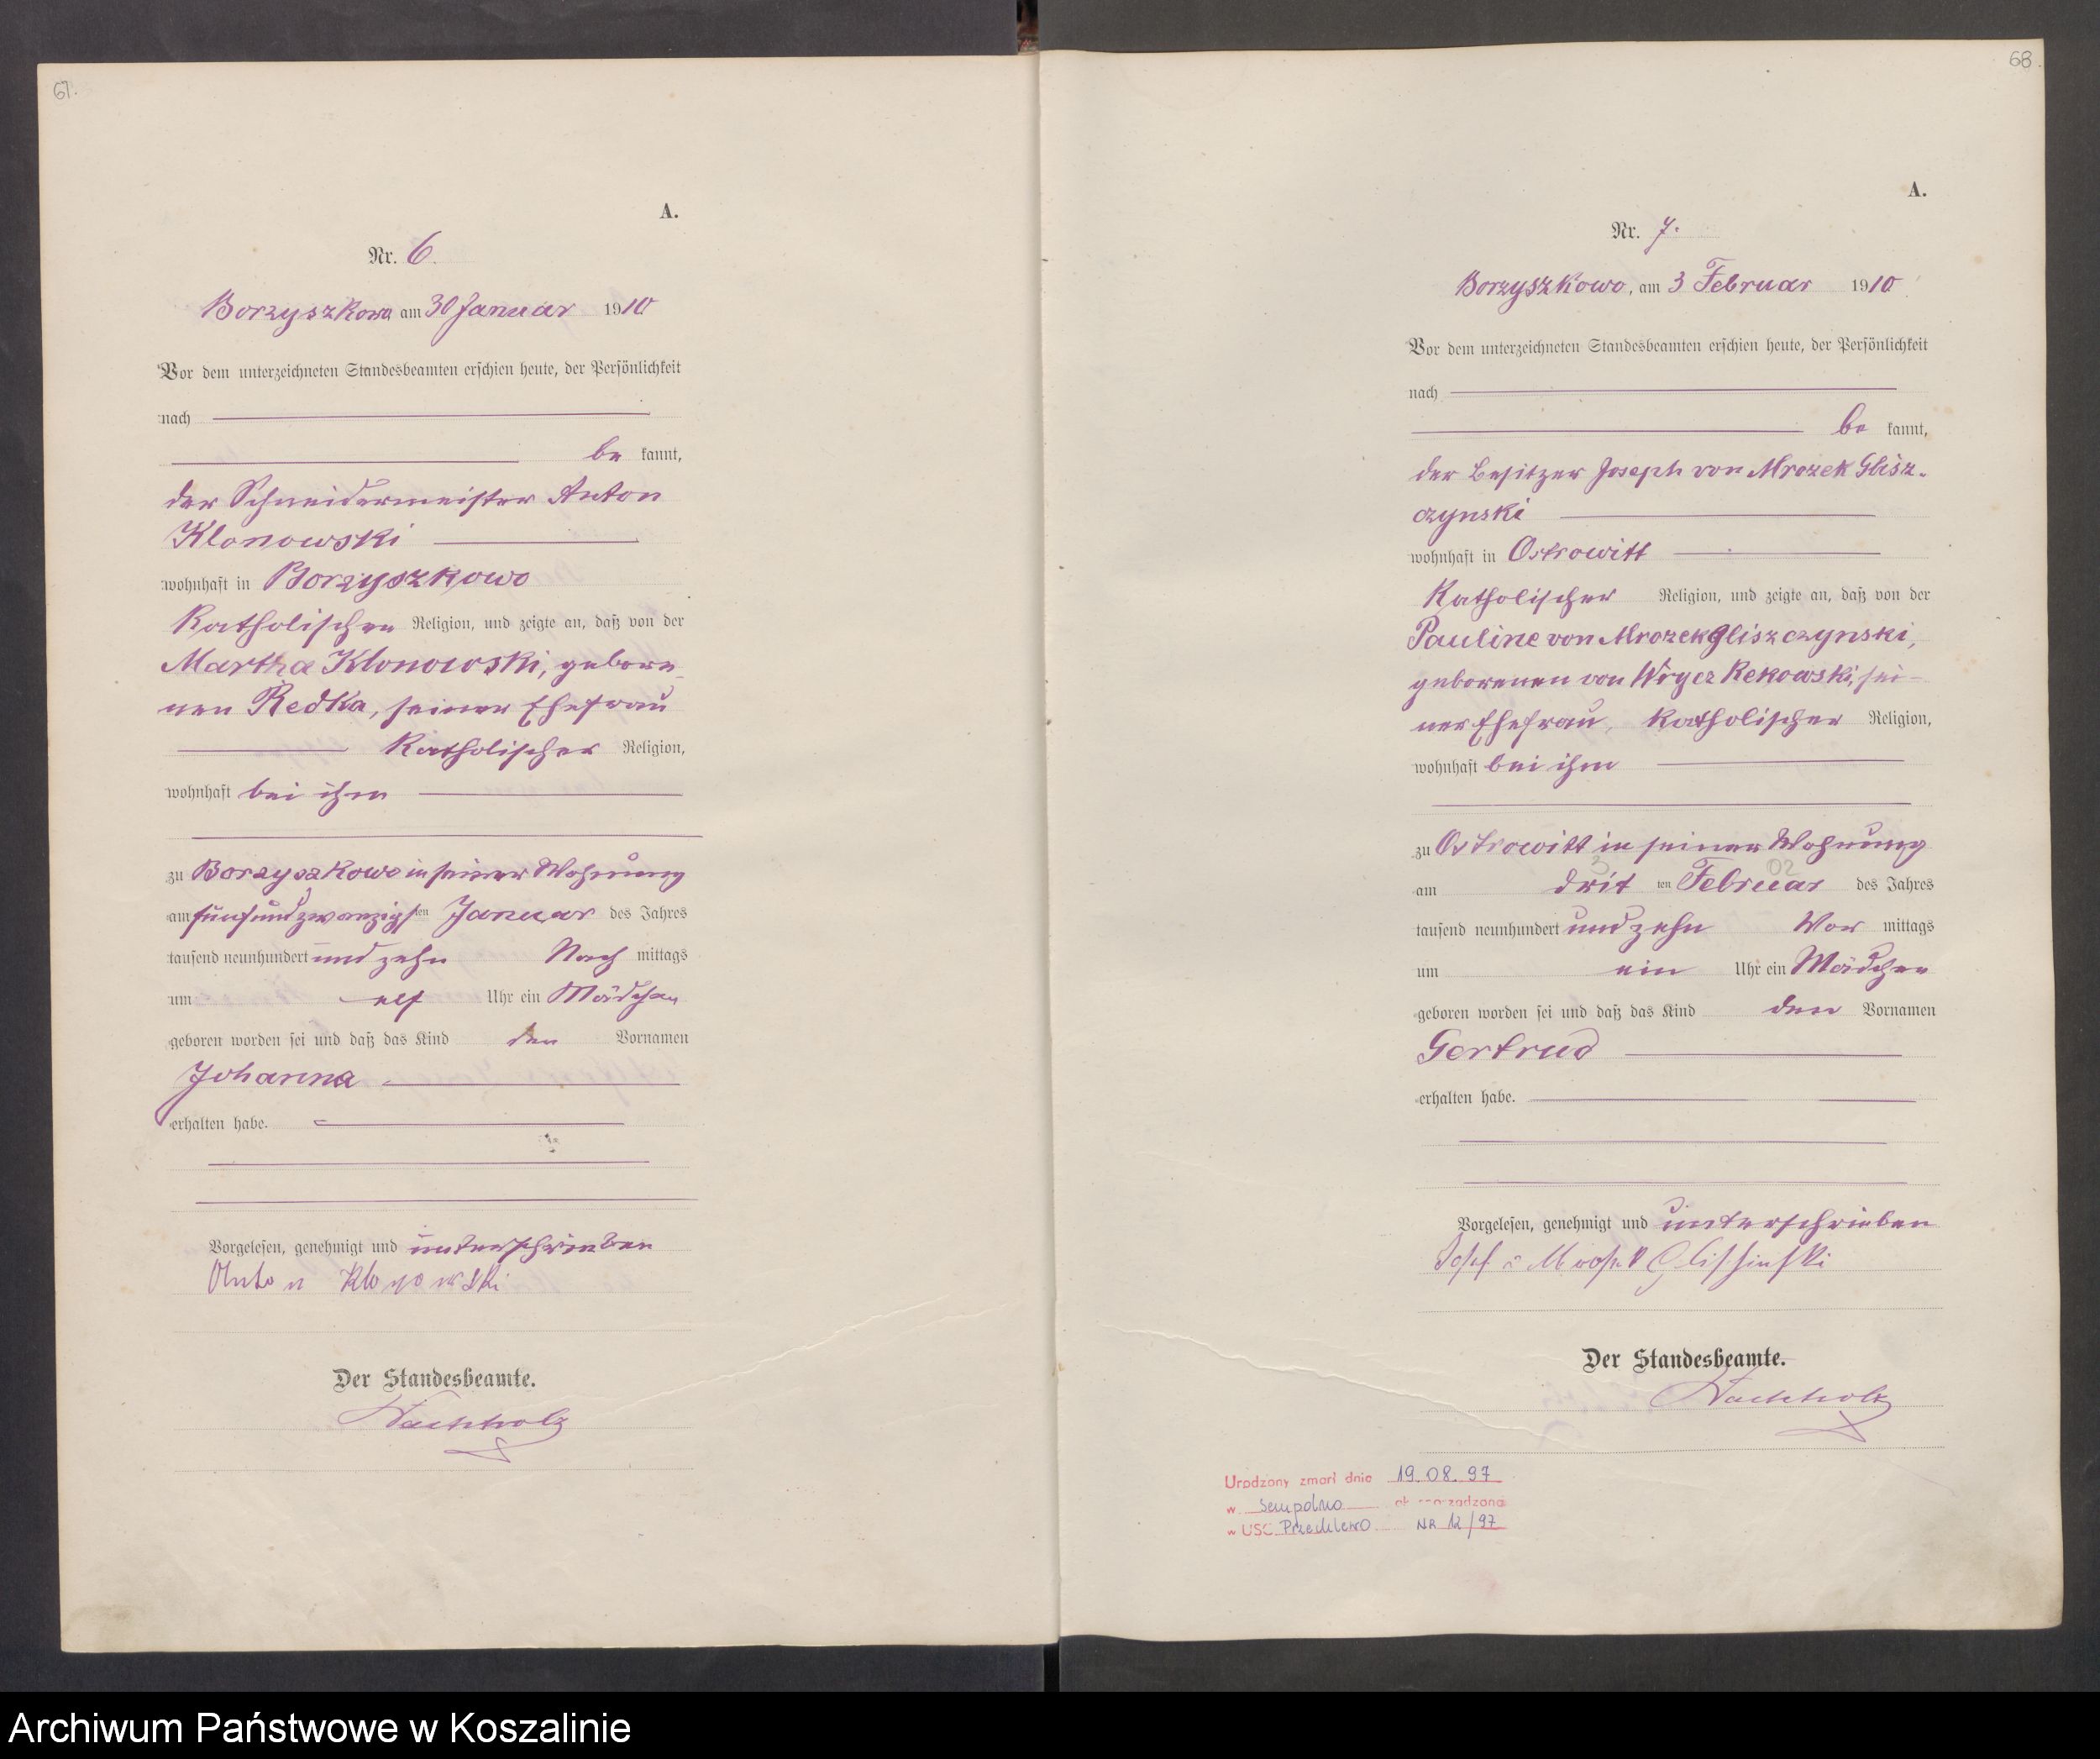 67.
A.
Nr. 6.
Borzyszkowo am 30 Januar 1910
Vor dem unterzeichneten Standesbeamten erschien heute, der Persönlichkeit
nach
be kannt,
der Schneidermeister Anton
Klonowski
wohnhaft in Borzyszkowo
Katholischen Religion, und zeigte an, daß von der
Martha Klonowski, gebore-
nen Redka, seiner Ehefrau
Katholischer Religion,
wohnhaft bei ihm
zu Borzyszkowo in seiner Wohnung
am fünfundzwanzigsten Januar des Jahres
tausend neunhundert und zehn Nach mittags
um elf Uhr ein Mädchen
geboren worden sei und daß das Kind den Vornamen
Johanna
erhalten habe.
Vorgelesen, genehmigt und unterschrieben
Anton Klonowski
Der Standesbeamte.
Wachholz
68.
A.
Nr. 7.
Borzyszkowo, am 3 Februar 1910
Vor dem unterzeichneten Standesbeamten erschien heute, der Persönlichkeit
nach
be kannt,
der Besitzer Joseph von Mrozek Glisz-
czynski
wohnhaft in Ostrowitt
Katholischer Religion, und zeigte an, daß von der
Pauline von Mrozek Gliszczynski,
geborenen von Wrycz Rekowski, sei-
ner Ehefrau, Katholischer Religion,
wohnhaft bei ihm
zu Ostrowitt in seiner Wohnung
3 02
am dritten Februar des Jahres
tausend neunhundert und zehn Vor mittags
um ein Uhr ein Mädchen
geboren worden sei und daß das Kind den Vornamen
Gertrud
erhalten habe.
Vorgelesen, genehmigt und unterschrieben
Josef v Mrosek Glischinski
Der Standesbeamte.
Wachholz
Urodzony zmarł dnia 19.08.97
w Sempolno akt sporządzono
w USC Przechlewo NR 12/97
Archiwum Państwowe w Koszalinie